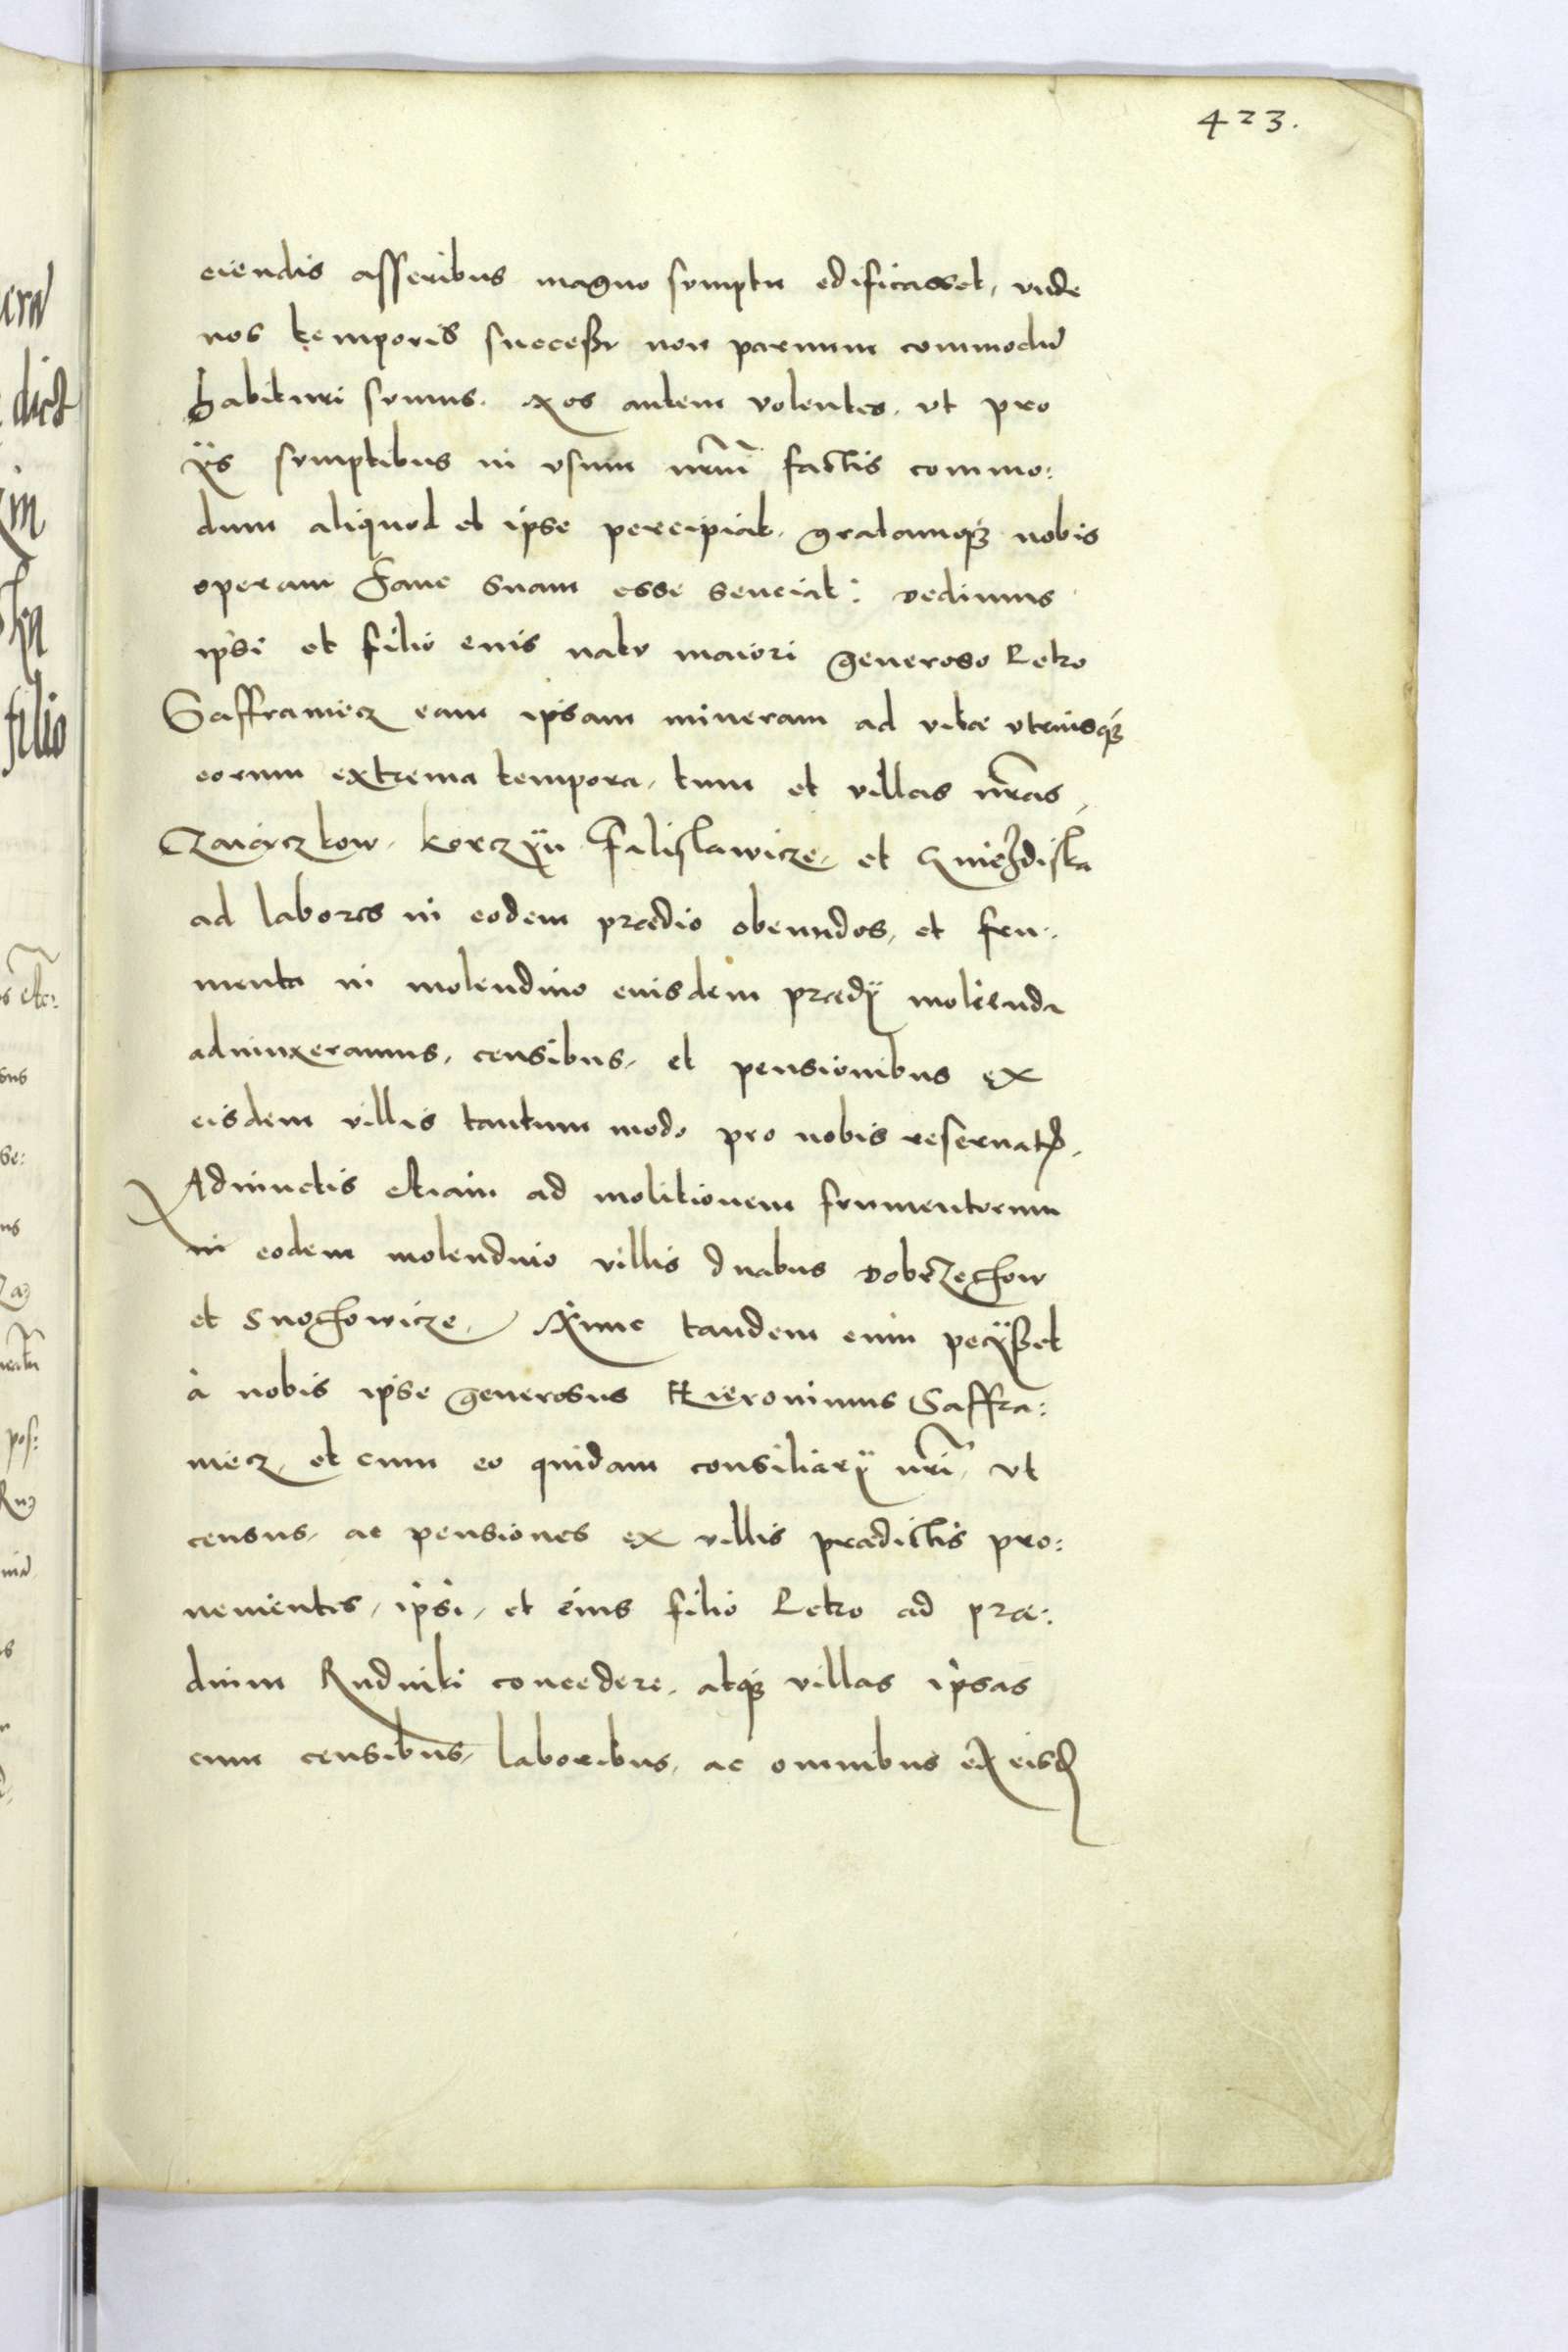 423.
eiendis asseribus magno sumptu edificasset, unde
nos temporis successu non parvum commodu
habituri sumus. Nos autem volentes, ut pro
ÿs sumptibus in usum nrm̄ factis commo:
dum aliquod et ipse percipiat, gratamq3 nobis
operam hanc suam esse senciat: dedimus
ipsi et filio eius natu maiori generoso Petro
Saffraniecz eam ipsam mineram ad vitæ utriusq3
eorum extrema tempora, tum et villas nr̄as,
Czaiączkow, Korczÿn Falislawicze, et Gnieździska
ad labores in eodem prædio obeundos, et fru:
menta in molendino eiusdem prædÿ molienda
adiunxeramus, censibus, et pensionibus ex
eisdem villis tantum modo pro nobis reservatis.
Adiunctis etiam ad molitionem frumentorum
in eodem molendino villis duabus Dobrzechow
et Snochowicze, Nunc tandem cum pecÿsset
à nobis ipse generosus Hieronimus Saffra:
niecz, et cum eo quidam consiliarÿ nr̄i, ut
census, ac pensiones ex villis prædictis pro:
venientes, ipsi, et eius filio Petro ad præ:
dium Rudniki concedere, atq3 villas ipsas
cum censibus, laboribus, ac omnibus ex eisd